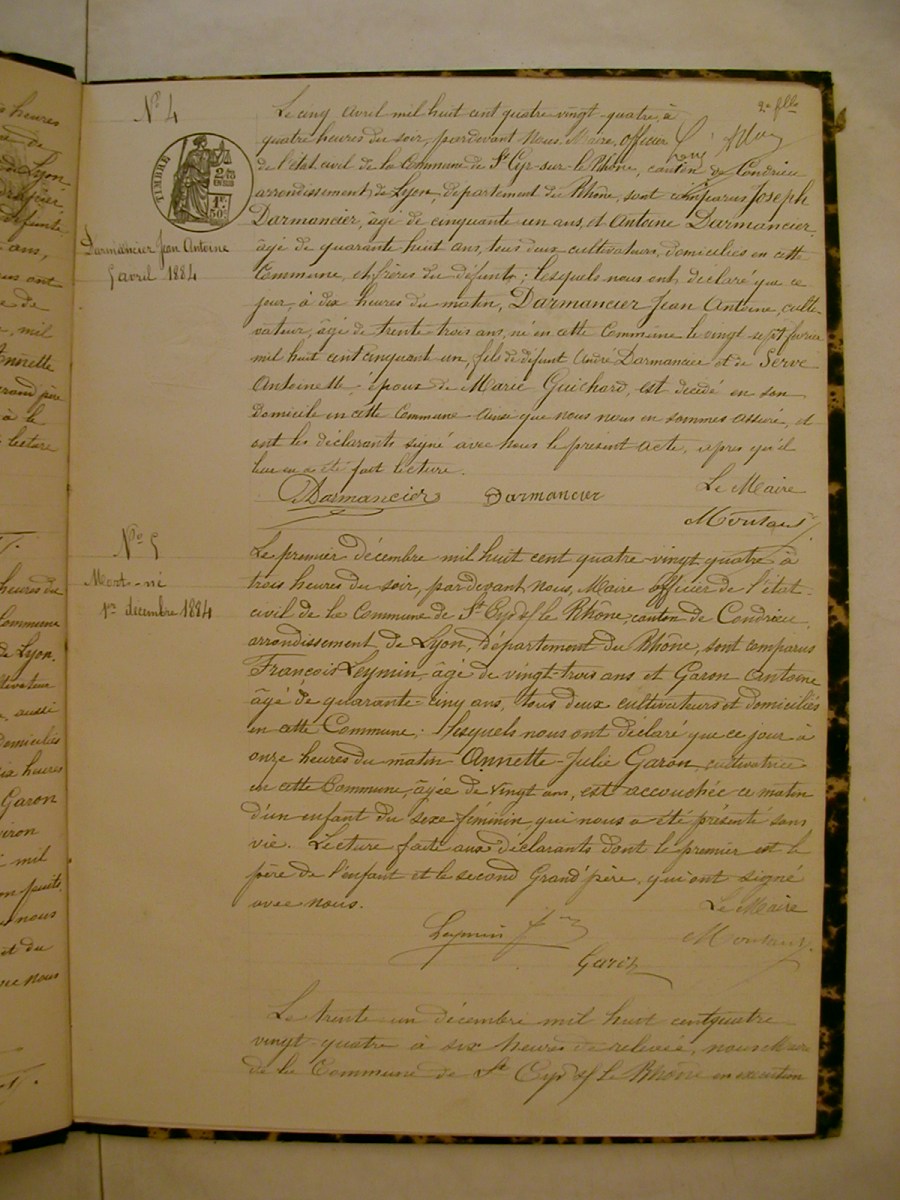 N° 4
2e flle
TIMBRE
2/10 EN SUS
1F. 50c.
Darmancier Jean Antoine
5 avril 1884
Le cinq avril mil huit cent quatre vingt quatre, à
quatre heures du soir, pardevant Nous, Maire, officier
de l'état civil de la Commune de St Cyr-sur-le Rhône, canton de Condrieu
arrondissement de Lyon, département du Rhône, sont comparus Joseph
Darmancier, âgé de cinquante un ans, et Antoine Darmancier,
âgé de quarante huit ans, tous deux cultivateurs, domiciliés en cette
Commune, et frères du défunt; lesquels nous ont déclaré que ce
jour, à dix heures du matin, Darmancier Jean Antoine, culti-
vateur, âgé de trente trois ans, né en cette Commune le vingt sept février
mil huit cent cinquante un, fils de défunt André Darmancier et de Serve
Antoinette époux de Marie Guichard, est décédé en son
domicile en cette Commune ainsi que nous nous en sommes assuré, et
ont les déclarants signé avec nous le présent acte, après qu'il
leur en a été fait lecture.
Le Maire
Darmancier Darmancier
N° 5
Mort-né
1er décembre 1884
Le premier décembre mil huit cent quatre-vingt quatre à
trois heures du soir, pardevant nous, Maire officier de l'état-
civil de la Commune de St Cyr s/ le Rhône, canton de Condrieu,
arrondissement de Lyon, département du Rhône, sont comparus
François Leymin, âgé de vingt-trois ans et Garon Antoine
âgé de quarante-cinq ans, tous deux cultivateurs et domiciliés
en cette Commune; lesquels nous ont déclaré que ce jour à
onze heures du matin Annette-Julie Garon, cultivatrice
en cette Commune, âgée de vingt ans, est accouchée ce matin
d'un enfant du sexe féminin, qui nous a été présenté sans
vie. Lecture faite aux déclarants dont le premier est le
père de l'enfant et le second Grand'père, qui ont signé
avec nous.
Le Maire
Leymin
Garon
Le trente un décembre mil huit cent quatre
vingt-quatre à six heures de relevée, nous Maire
de la Commune de St Cyr s/ le Rhône en exécution